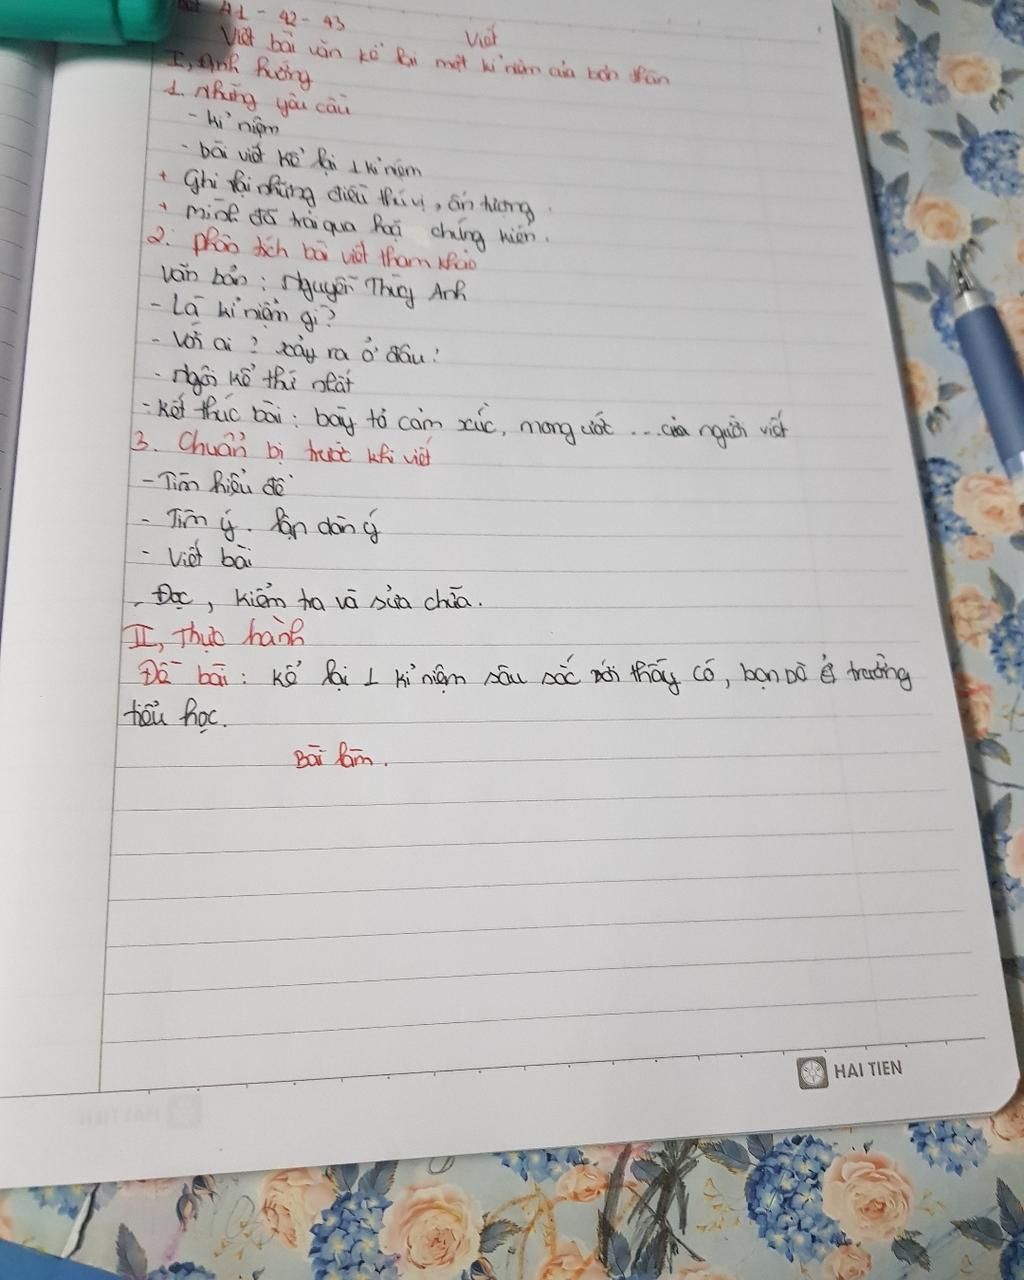 41 - 42 - 43 Viết
Viết bài văn kể lại một kỉ niệm của bản thân
I, Định hướng
1. Những yêu cầu
- kỉ niệm
- bài viết kể lại 1 kỉ niệm
+ Ghi lại những điều thú vị, ấn tượng.
+ mình đã trải qua hoặc chứng kiến.
2. phân tích bài viết tham khảo
văn bản : Nguyễn Thùy Anh
- Là kỉ niệm gì?
- Với ai ? xảy ra ở đâu?
- Ngôi kể thứ nhất
- Kết thúc bài : bày tỏ cảm xúc, mong ước ... của người viết
3. Chuẩn bị trước khi viết
- Tìm hiểu đề
- Tìm ý. lập dàn ý
- Viết bài
. Đọc, kiểm tra và sửa chữa.
II, Thực hành
Đề bài : kể lại 1 kỉ niệm sâu sắc với thầy cô, bạn bè ở trường
tiểu học.
Bài làm.
HAI TIEN